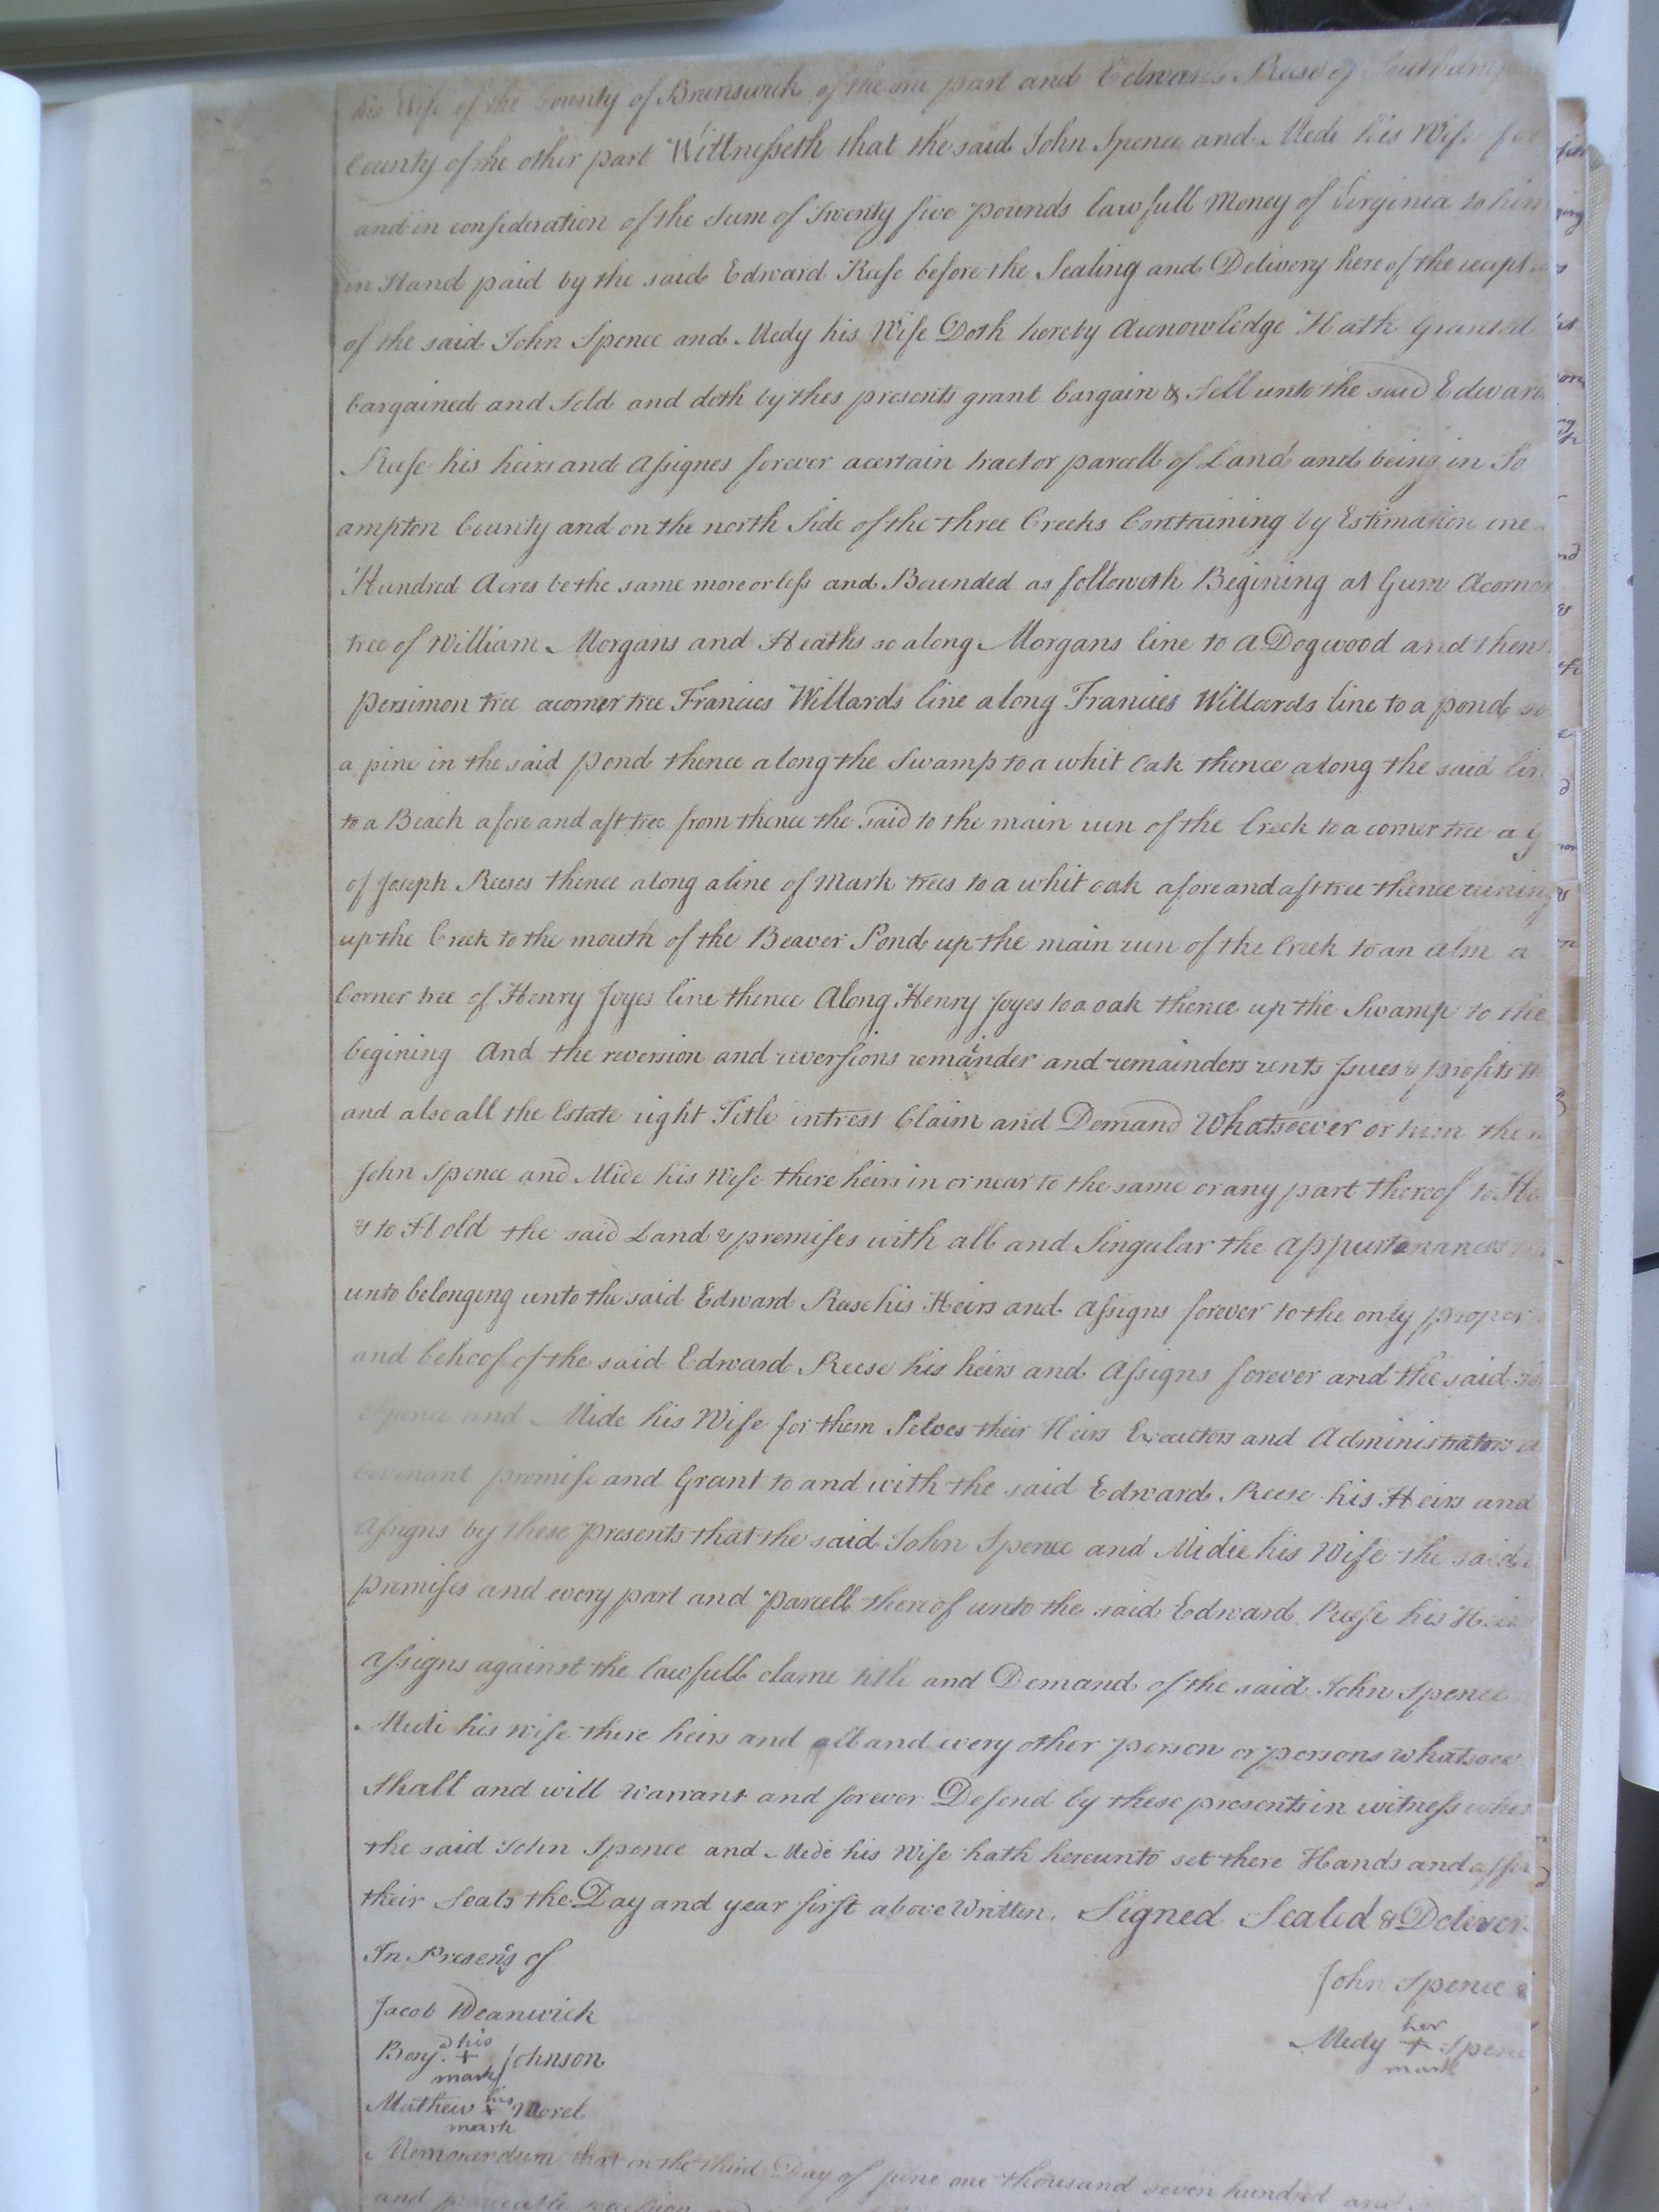 his Wife of the County of Brunswick of the one part and Edward Reese of Southamp
County of the other part Wittnesseth that the said John Spence and Mede his Wife for
and in consideration of the Sum of Twenty five pounds lawfull Money of Virginia to him
in Hand paid by the said Edward Reese before the Sealing and Delivery here of the recept
of the said John Spence and Medy his Wife Doth hereby Acknowledge Hath Granted
bargained and Sold and doth by thes presents grant bargain & Sell unto the said Edward
Reese his heirs and Assignes forever acertain tract or parcell of Land and being in So
ampton County and on the north Side of the three Creeks Containing by Estimation one
Hundred Acres be the same more or less and Bounded as followeth Begining at Gum Acorner
tree of William Morgans and Heaths so along Morgans line to a Dogwood and thens
persimon tree acorner tree Francies Willards line along Francies Willards line to a pond so
a pine in the said pond thence along the Swamp to a whit oak thence along the said line
to a Beach a fore and aft tree from thence the said to the main run of the Creek to a corner tree a g
of Joseph Reeses thence along a line of Mark trees to a whit oak a fore and aft tree thence runing
up the Creek to the mouth of the Beaver Pond up the main run of the Creek to an alm a
Corner tree of Henry Joyes line thence Along Henry Joyes to a oak thence up the Swamp to the
begining And the reversion and reversions remainder and remainders rents Jsues & profits th
and also all the Estate right Title intrest Claim and Demand Whatsoever or them the
John Spence and Mide his Wife there heirs in or near to the same or any part thereof to Ha
& to Hold the said Land & premises with all and Singular the Appurtanances
unto belonging unto the said Edward Reese his Heirs and Assigns forever to the only proper
and behoof of the said Edward Reese his heirs and Assigns forever and the said
Spence and Mide his Wife for them Selves their Heirs Executors and Administrators
Covenant promise and Grant to and with the said Edward Reese his Heirs and
Assigns by these presents that the said John Spence and Midie his Wife the said
premises and every part and parcell thereof unto the said Edward Reese his Heir
Assigns against the lawfull clame title and Demand of the said John Spence
Medi his wife there heirs and all and every other person or persons whatsoev
Shall and will Warrant and forever Defend by these presents in witness wher
the said John Spence and Mede his Wife hath hereunto set there Hands and affix
their Seals the Day and year first above Written. Signed Sealed & Deliver
In Presens of
John Spence
Jacob Weanwick
her
Medy + Spenc
mark
his
Benj. + Johnson
mark
his
Mathew + Morel
mark
Memorendum that on the third Day of June one thousand seven hundred and
and peaceable